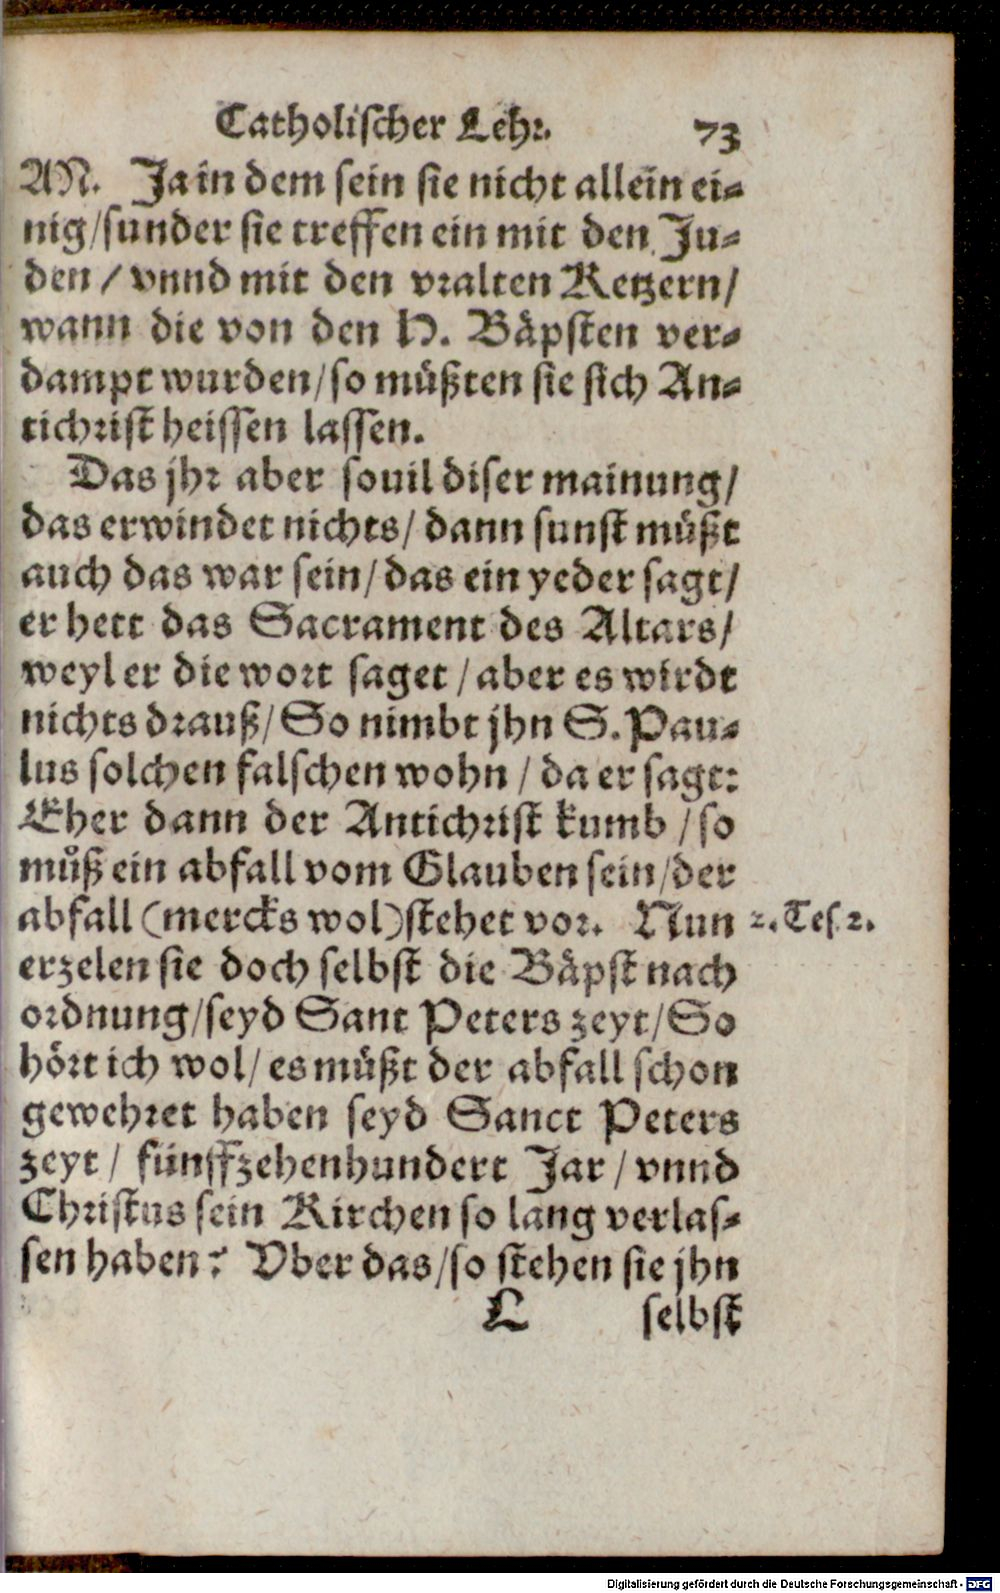 Catholischer Lehr. 73
AN. Ja in dem sein sie nicht allein ei⸗
nig/sunder sie treffen ein mit den Ju⸗
den / vnnd mit den vralten Ketzern/
wann die von den H. Bäpsten ver⸗
dampt wurden/so müßten sie sich An⸗
tichrist heissen lassen.
Das jhr aber souil diser mainung/
das erwindet nichts/ dann sunst müßt
auch das war sein/das ein yeder sagt/
er hett das Sacrament des Altars/
weyl er die wort saget /aber es wirdt
nichts drauß/ So nimbt jhn S. Pau⸗
lus solchen falschen wohn / da er sagt:
Eher dann der Antichrist kumb /so
můß ein abfall vom Glauben sein/der
abfall (mercks wol)stehet vor. Nun 2. Tes. 2.
erzelen sie doch selbst die Bäpst nach
ordnung/seyd Sant Peters zeyt/So
hört ich wol/ es müßt der abfall schon
gewehret haben seyd Sanct Peters
zeyt / fünffzehenhundert Jar / vnnd
Christus sein Kirchen so lang verlas⸗
sen haben? Vber das/so stehen sie jhn
L selbst
Digitalisierung gefördert durch die Deutsche Forschungsgemeinschaft - DFG